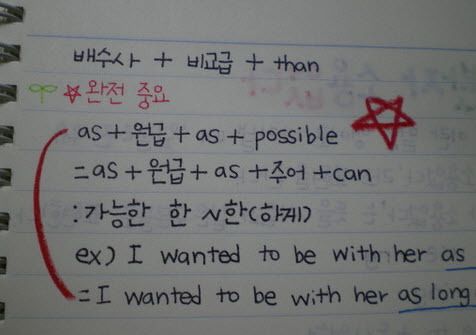 배수사 + 비교급 + than
☆완전 중요
as + 원급 + as + possible
= as + 원급 + as + 주어 + can
: 가능한 한 ~한(하게)
ex) I wanted to be with her as
= I wanted to be with her as long